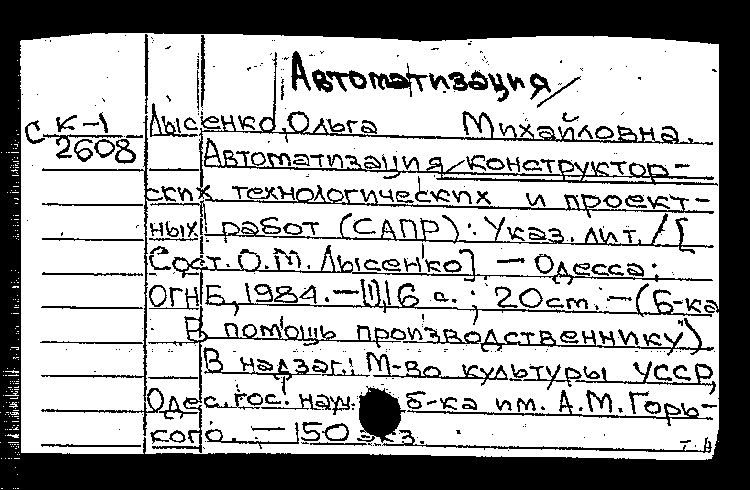 Автоматизация/
С К-1 Лысенко, Ольга Михайловна.
2608 Автоматизация конструктор-
ских технологических и проект-
ных работ (САПР): Указ. лит. / [
Сост. О.М. Лысенко]. — Одесса:
ОГНБ, 1984. — 16 с.; 20 см. — (Б-ка
В помощь производственнику")
В надзаг.: М-во культуры УССР,
Одес. гос. науч. б-ка им. А.М. Горь-
кого. — 150 экз.